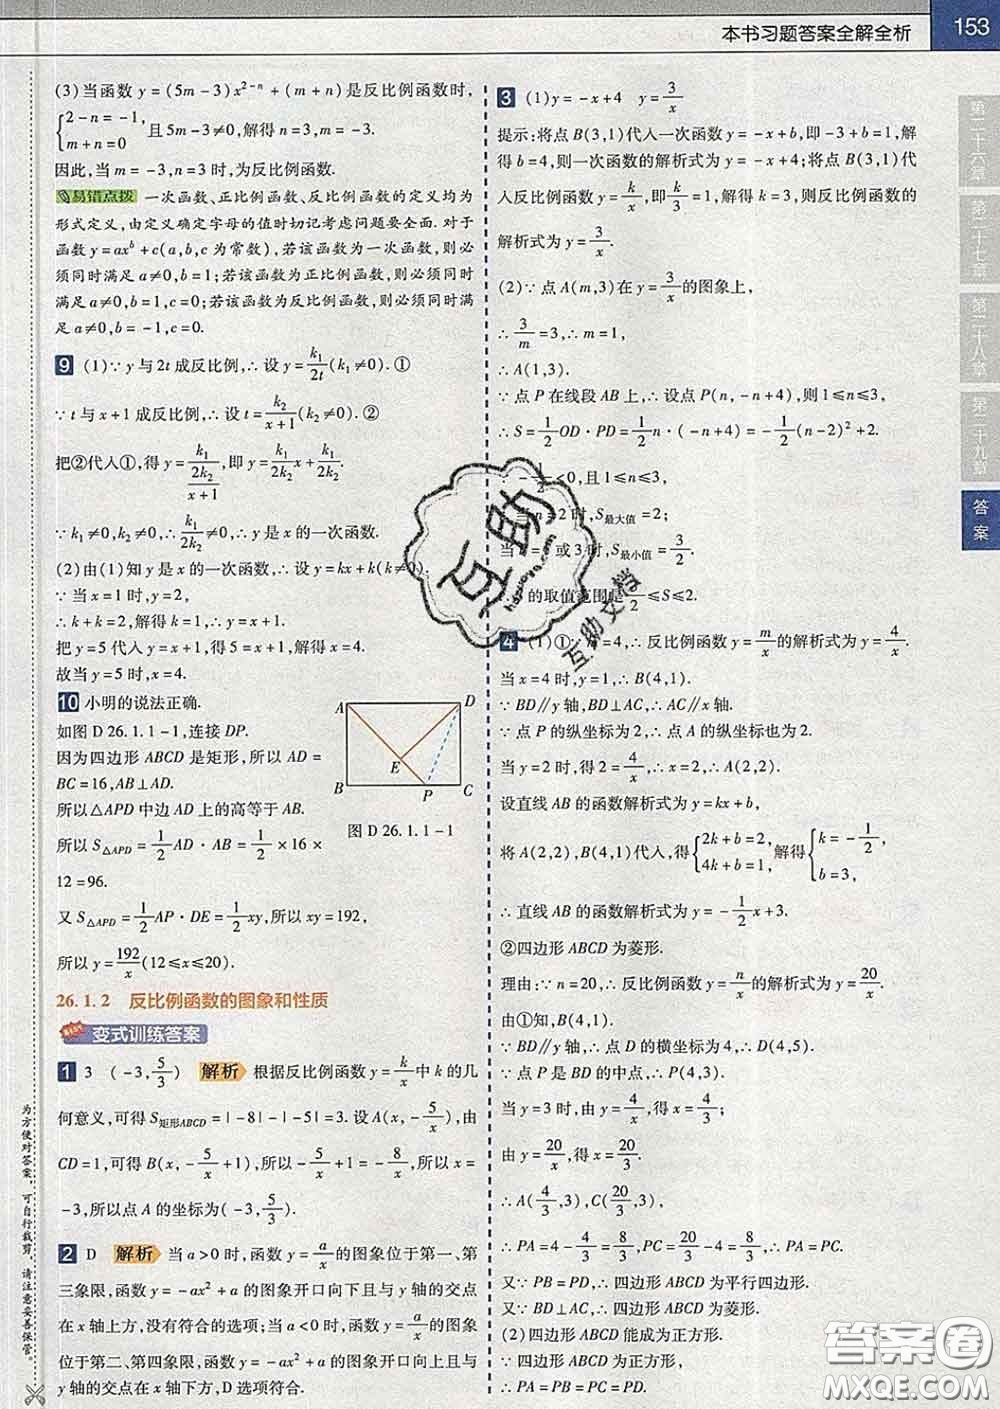 本书习题答案全解全析
153
(3)当函数 y=(5m-3)x^{2-n}+(m+n)是反比例函数时,
{2-n=-1, m+n=0 且 5m-3≠0,解得 n=3,m=-3.
因此,当 m=-3,n=3 时,为反比例函数.
易错点拨 一次函数、正比例函数、反比例函数的定义均为
形式定义,由定义确定字母的值时切记考虑问题要全面.对于
函数 y=ax^b+c(a,b,c 为常数),若该函数为一次函数,则必
须同时满足 a≠0,b=1;若该函数为正比例函数,则必须同时
满足 a≠0,b=1,c=0;若该函数为反比例函数,则必须同时满
足 a≠0,b=-1,c=0.
9 (1)∵y 与 2t 成反比例,∴设 y=k₁/2t(k₁≠0).①
∵t 与 x+1 成反比例,∴设 t=k₂/(x+1)(k₂≠0).②
把②代入①,得 y=k₁/(2k₂/(x+1)),即 y=k₁/2k₂
∵k₁≠0,k₂≠0,∴k₁/2k₂≠0,∴y 是 x 的一次函数.
(2)由(1)知 y 是 x 的一次函数,∴设 y=kx+k(k≠0).
∵当 x=1 时,y=2,
∴k+k=2,解得 k=1.∴y=x+1.
把 y=5 代入 y=x+1,得 5=x+1,解得 x=4.
故当 y=5 时,x=4.
10 小明的说法正确.
如图 D26.1.1-1,连接 DP.
因为四边形 ABCD 是矩形,所以 AD=
BC=16,AB⊥AD.
所以△APD 中边 AD 上的高等于 AB.
所以 S△APD=1/2 AD·AB=1/2×16×
12=96.
又 S△APD=1/2 AP·DE=1/2 xy,所以 xy=192,
所以 y=192/x(12≤x≤20).
A D
E
B P C
图 D26.1.1-1
26.1.2 反比例函数的图象和性质
变式训练答案
1 3 (-3,5/3) 解析 根据反比例函数 y=k/x 中 k 的几
何意义,可得 S矩形ABCD=|-8|-|-5|=3.设 A(x,-5/x),由
CD=1,可得 B(x,-5/x+1),所以-5/x+1=-8/x,所以 x=
-3,所以点 A 的坐标为(-3,5/3).
2 D 解析 当 a>0 时,函数 y=a/x 的图象位于第一、第
三象限,函数 y=-ax²+a 的图象开口向下且与 y 轴的交点
在 x 轴上方,没有符合的选项;当 a<0 时,函数 y=a/x 的图象
位于第二、第四象限,函数 y=-ax²+a 的图象开口向上且与
y 轴的交点在 x 轴下方,D 选项符合.
3 (1)y=-x+4 y=3/x
提示:将点 B(3,1)代入一次函数 y=-x+b,即-3+b=1,解
得 b=4,则一次函数的解析式为 y=-x+4;将点 B(3,1)代
入反比例函数 y=k/x,即k/3=1,解得 k=3,则反比例函数的
解析式为 y=3/x.
(2)∵点 A(m,3)在 y=3/x 的图象上,
∴3/m=3,∴m=1,
∴A(1,3).
∵点 P 在线段 AB 上,∴设点 P(n,-n+4),则 1≤n≤3,
∴S=1/2 OD·PD=1/2 n·(-n+4)=-1/2(n-2)²+2.
<0,且 1≤n≤3,
n=2 时,S最大值=2;
当 或 3 时,S最小值=3/2.
的取值范围是 ≤S≤2.
4 (1)①∵ =4,∴反比例函数 y=m/x 的解析式为 y=4/x.
当 x=4 时,y=1,∴B(4,1).
∵BD∥y 轴,BD⊥AC,∴AC∥x 轴.
∵点 P 的纵坐标为 2,∴点 A 的纵坐标也为 2.
当 y=2 时,得 2=4/x,∴x=2,∴A(2,2).
设直线 AB 的函数解析式为 y=kx+b,
将 A(2,2),B(4,1)代入,得{2k+b=2, 4k+b=1, 解得{k=-1/2, b=3,
∴直线 AB 的函数解析式为 y=-1/2 x+3.
②四边形 ABCD 为菱形.
理由:∵n=20,∴反比例函数 y=n/x 的解析式为 y=20/x.
由①知,B(4,1).
∵BD∥y 轴,∴点 D 的横坐标为 4,∴D(4,5).
∵点 P 是 BD 的中点,∴P(4,3).
当 y=3 时,由 y=4/x,得 x=4/3;
由 y=20/x,得 x=20/3.
∴A(4/3,3),C(20/3,3),
∴PA=4-4/3=8/3,PC=20/3-4=8/3,∴PA=PC.
又∵PB=PD,∴四边形 ABCD 为平行四边形.
又∵BD⊥AC,∴四边形 ABCD 为菱形.
(2)四边形 ABCD 能成为正方形.
∵四边形 ABCD 为正方形,
∴PA=PB=PC=PD.
第二十六章
第二十七章
第二十八章
第二十九章
答案
为方便对答案,可自行裁剪,请注意妥善保管。
互助
互助文档
答案圈
MXQE.COM